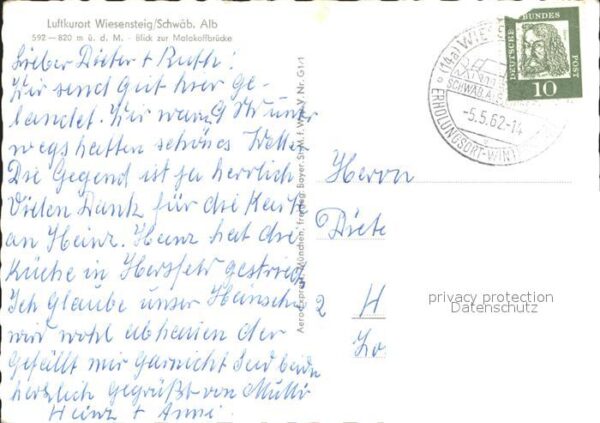 Luftkurort Wiesensteig/Schwäb. Alb
592 — 820 m ü. d. M. - Blick zur Malakoffbrücke
Lieber Dieter + Ruth!
Wir sind gut hier ge-
landet. Wir waren unter
wegs hatten schönes Wetter
Die Gegend ist ja herrlich
Vielen Dank für die Karte
an Heinz. Heinz hat die
Küche in Hersfeld gestrich
Ich Glaube unser Heinsche
wir wohl abhauen der
gefällt mir garnicht Seid beide
herzlich gegrüßt von Mutti
Heinz + Anni.
Aero München, freigeg. Bayer. St. M. f. W. u. V. Nr. G
DEUTSCHE BUNDES POST
10
(14a) WIES
SCHWÄB. A
-5.5.62-14
ERHOLUNGSORT-WINT
Herrn
Diete
2 H
privacy protection
Datenschutz